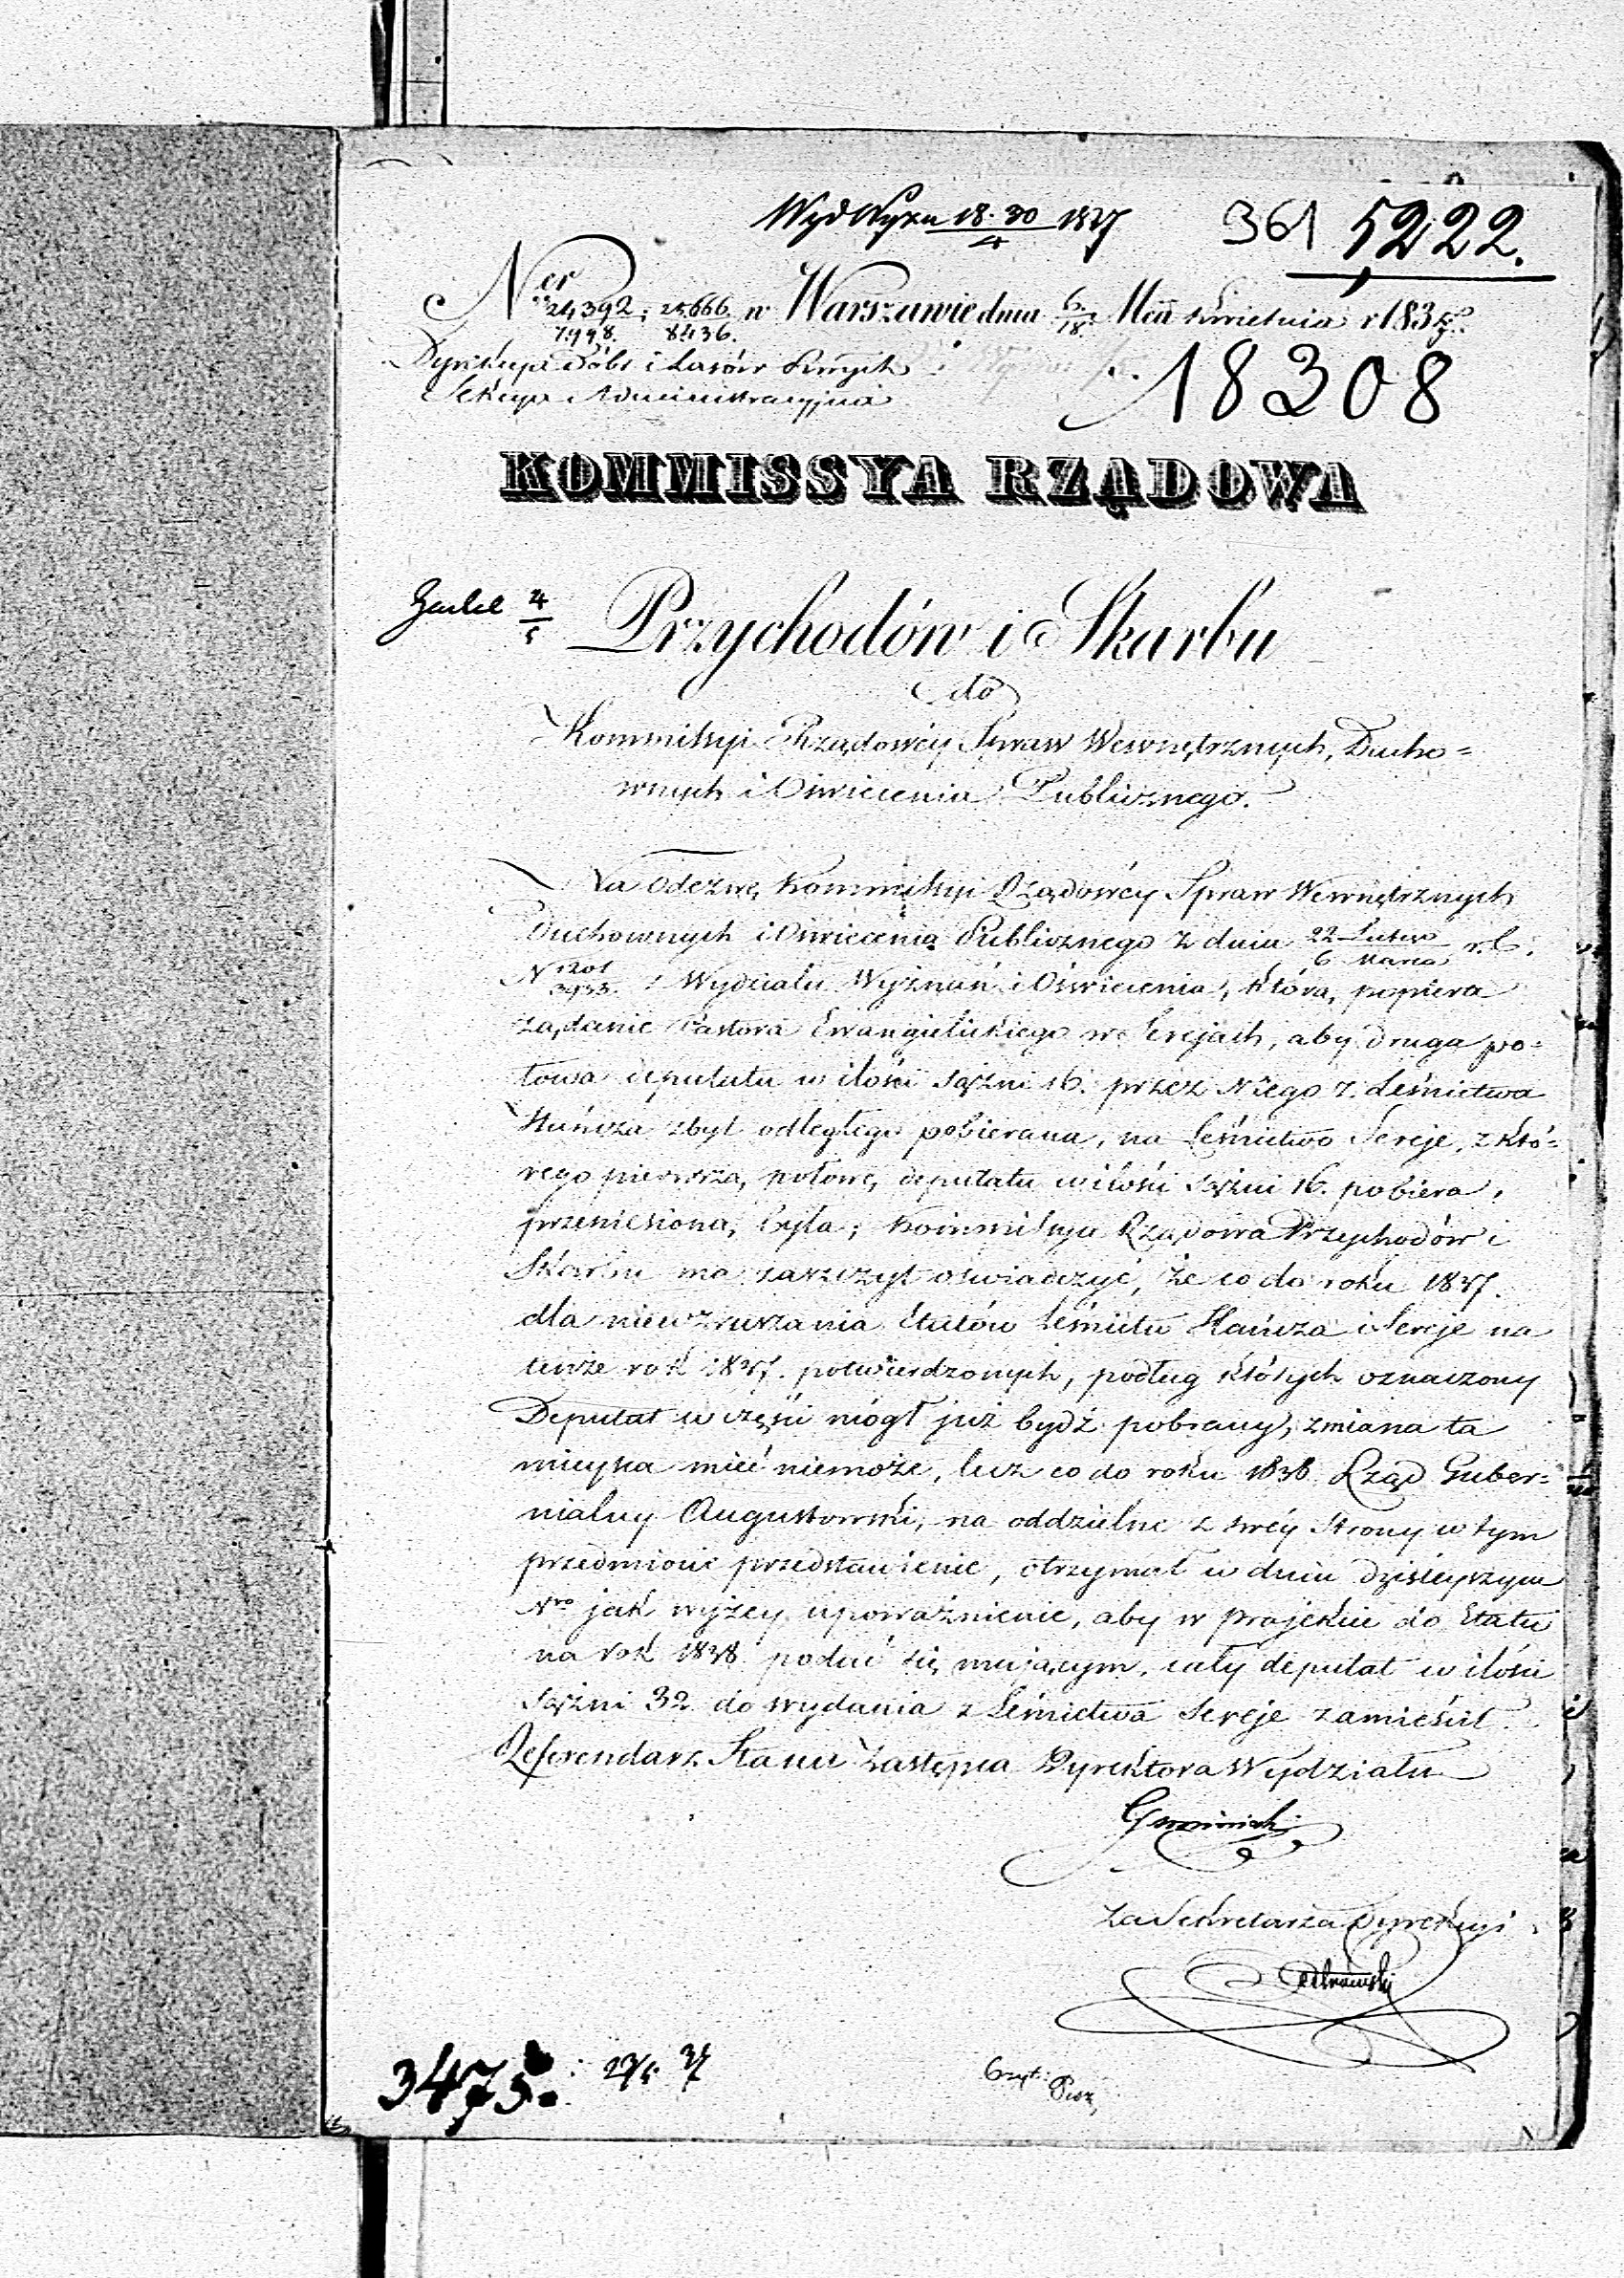 18. 30 1837
4
361 5222.
Ner 24392; 25666. w Warszawie dnia 6/18. Mca Kwietnia r 1837.
7998. 8436.
Dyrekcya Dóbr i Lasów Rzwych
Sekcya Administracyjna
18308
KOMMISSYA RZĄDOWA
4/5
Przychodów i Skarbu
do
Kommissyi Rządowéy Spraw Wewnętrznych, Ducho=
wnych i Oświecenia Publicznego.
Na Odezwę Kommissyi Rządowéy Spraw Wewnętrznych
Duchownych i Oświecenia Publicznego z dnia 22 Lutego / 6 Marca r. b.
N Wydziału Wyznań i Oświecenia, którą popiera
żądanie Pastora Ewangielickiego we Serejach, aby druga po=
łowa deputatu w ilości sążni 16. przez Niego z Leśnictwa
Hańcza zbyt odległego pobierana, na Leśnictwo Sereje, z któ=
rego pierwszą połowę deputatu w ilości sążni 16. pobiera,
przeniesioną była; Kommissya Rządowa Przychodów i
Skarbu ma zaszczyt oświadczyć, że co do roku 1837.
dla niewzruszania Etatów Leśnictw Hańcza i Sereje na
tenże rok 1837. potwierdzonych, podług których oznaczony
Deputat w części mógł już bydź pobrany, zmiana ta
mieysca mieć niemoże, lecz co do roku 1838. Rząd Guber=
nialny Augustowski, na oddzielne z swéy strony w tym
przedmiocie przedstawienie, otrzymał w dniu dzisieyszym
Nro jak wyżéy upoważnienie, aby w projekcie do Etatu
na rok 1838 podać się mającym, cały deputat w ilości
sążni 32 do wydania z Leśnictwa Sereje zamieścił.
Referendarz Stanu Zastępca Dyrektora Wydziału
Za Sekretarza Dyrekcyi
3475. 23/5 37
Czyt: